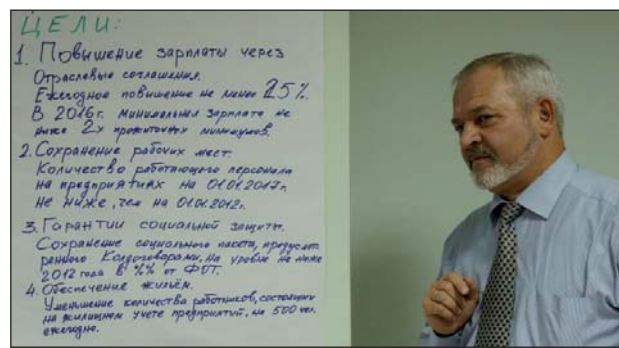 ЦЕЛИ:
1. Повышение зарплаты через
Отраслевые соглашения.
Ежегодное повышение не менее 25%.
В 2016г. минимальная зарплата не
ниже 2х прожиточных минимумов.
2. Сохранение рабочих мест.
Количество работающего персонала
на предприятиях на 01.01.2017г.
не ниже, чем на 01.01.2012г.
3. Гарантии социальной защиты.
Сохранение социального пакета, предусмот
ренного Колдоговорами, на уровне не ниже
2012 года в %% от ФОТ.
4. Обеспечение жильём.
Уменьшение количества работников, состоящих
на жилищном учете предприятий, на 500 чел.
ежегодно.